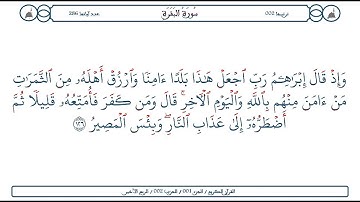 ترتيبها 002
سُورَةُ البَقَرَةِ
عدد آياتها 286
وَإِذْ قَالَ إِبْرَٰهِـۧمُ رَبِّ ٱجْعَلْ هَٰذَا بَلَدًا ءَامِنًا وَٱرْزُقْ أَهْلَهُۥ مِنَ ٱلثَّمَرَٰتِ
مَنْ ءَامَنَ مِنْهُم بِٱللَّهِ وَٱلْيَوْمِ ٱلْءَاخِرِ ۖ قَالَ وَمَن كَفَرَ فَأُمَتِّعُهُۥ قَلِيلًا ثُمَّ
أَضْطَرُّهُۥٓ إِلَىٰ عَذَابِ ٱلنَّارِ ۖ وَبِئْسَ ٱلْمَصِيرُ ١٢٦
القرآن الكريم / الجزء 001 / الحزب 002 / الربع الخامس